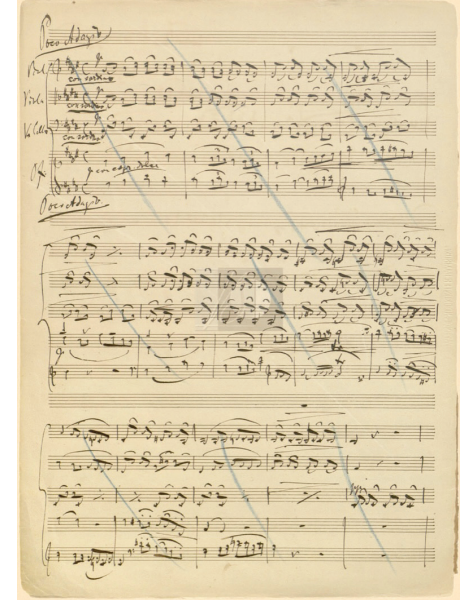 Poco Adagio
Viol
con sordino
Viola
con sordino
Vcello
con sordino
Pf
Poco Adagio